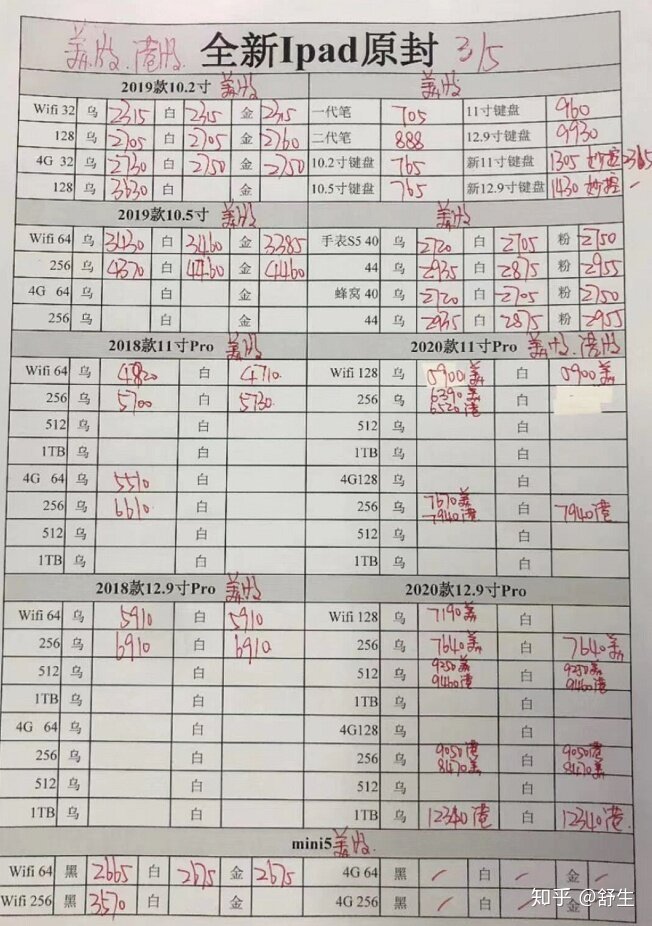 美版.港版 全新Ipad原封 3/5
2019款10.2寸 美版 美版
Wifi 32 乌 2315 白 2315 金 2315 一代笔 705 11寸键盘 960
128 乌 2705 白 2705 金 2760 二代笔 888 12.9寸键盘 9930
4G 32 乌 2730 白 2750 金 2750 10.2寸键盘 765 新11寸键盘 1305 妙控2365
128 乌 3630 白 金 10.5寸键盘 765 新12.9寸键盘 1430 妙控 -
2019款10.5寸 美版 美版
Wifi 64 乌 3430 白 3460 金 3385 手表S5 40 乌 2720 白 2705 粉 2750
256 乌 4370 白 4460 金 4460 44 乌 2935 白 2875 粉 2955
4G 64 乌 白 金 蜂窝 40 乌 2720 白 2705 粉 2750
256 乌 白 金 44 乌 2935 白 2875 粉 2955
2018款11寸Pro 美版 2020款11寸Pro 美版.港版
Wifi 64 乌 4820 白 4710 Wifi 128 乌 5900美 白 5900美
256 乌 5700 白 5730 256 乌 6390美 6520港 白
512 乌 白 512 乌 白
1TB 乌 白 1TB 乌 白
4G 64 乌 5510 白 4G128 乌 白
256 乌 6610 白 256 乌 7670美 7940港 白 7940港
512 乌 白 512 乌 白
1TB 乌 白 1TB 乌 白
2018款12.9寸Pro 美版 2020款12.9寸Pro
Wifi 64 乌 5910 白 5910 Wifi 128 乌 7190美 白
256 乌 6910 白 6910 256 乌 7640美 白 7640美
512 乌 白 512 乌 9350美 9460港 白 9250美 9460港
1TB 乌 白 1TB 乌 白
4G 64 乌 白 4G128 乌 白
256 乌 白 256 乌 9050港 8470美 白 9050港 8470美
512 乌 白 512 乌 白
1TB 乌 白 1TB 乌 12340港 白 12340港
mini5 美版
Wifi 64 黑 2665 白 2675 金 2675 4G 64 黑 - 白 - 金 -
Wifi 256 黑 3570 白 金 4G 256 黑 - 白 - 金
知乎 @舒生